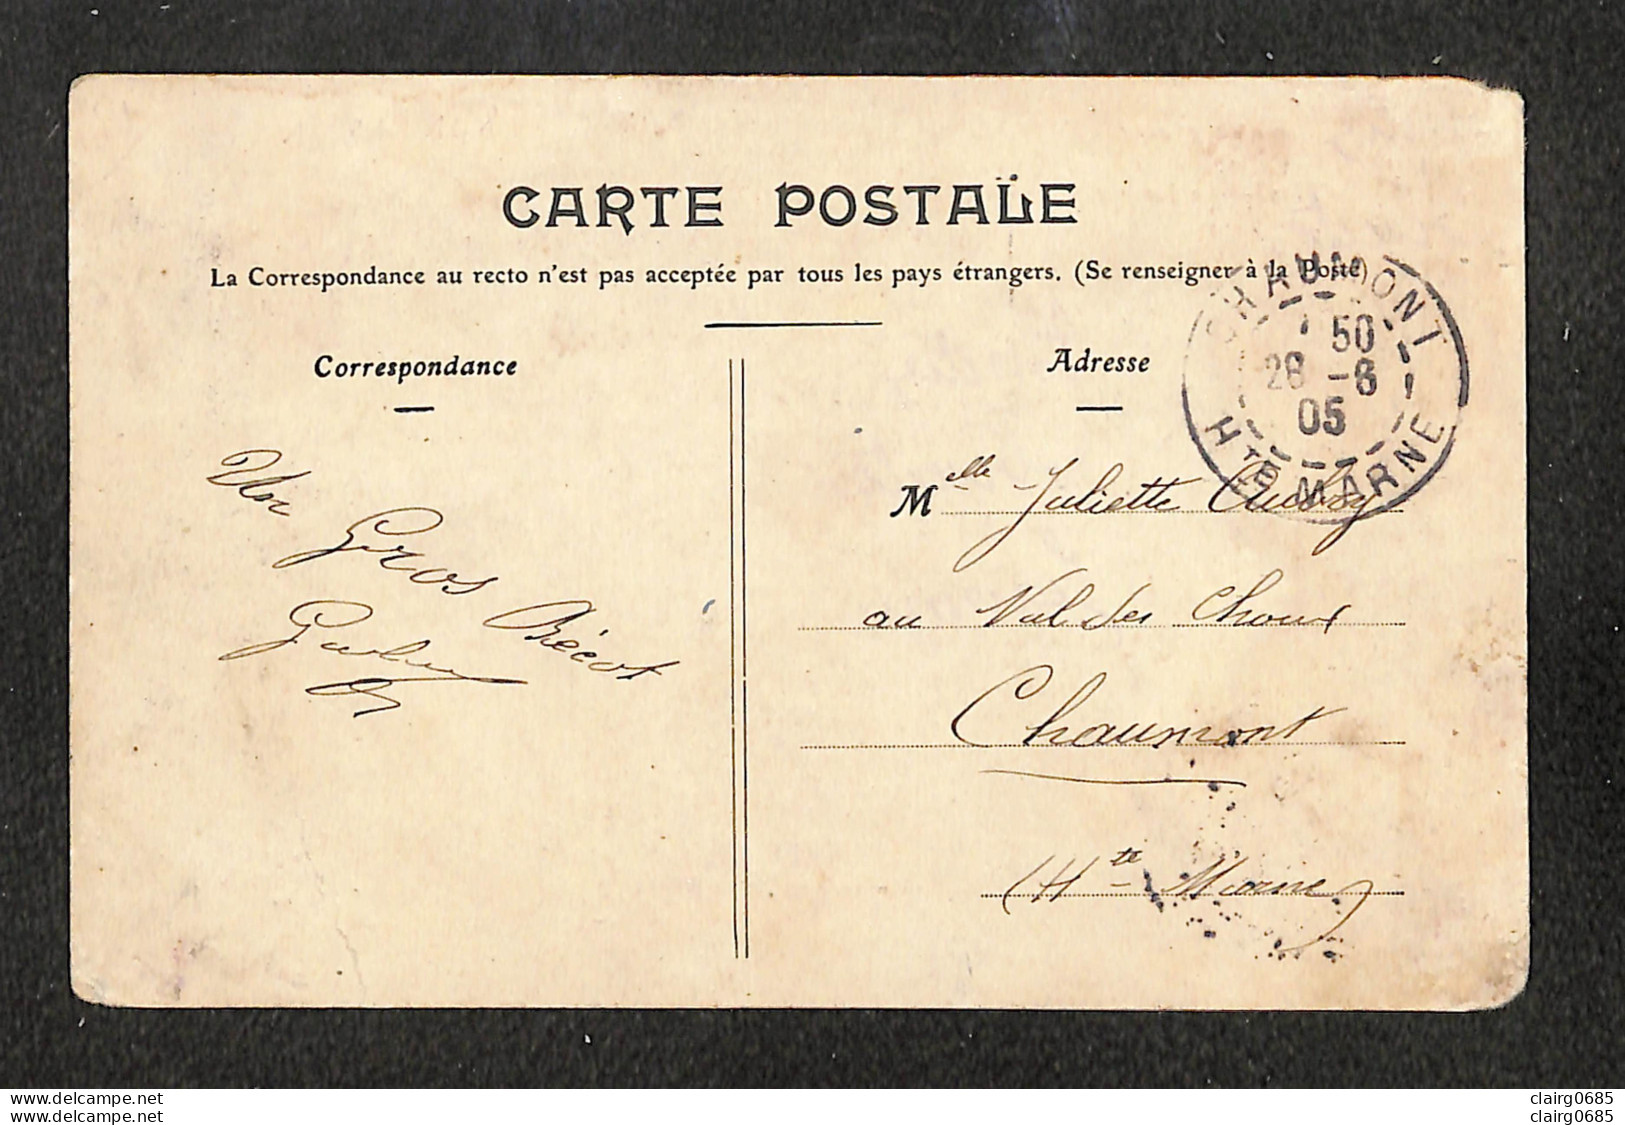 CARTE POSTALE
La Correspondance au recto n'est pas acceptée par tous les pays étrangers. (Se renseigner à la Poste)
CHAUMONT
50
28 -8
05
Hte MARNE
Correspondance
Adresse
Un
Gros Bécot
Melle Juliette Aubry
au Val des Choux
Chaumont
(Hte - Marne)
www.delcampe.net
www.delcampe.net
clairg0685
clairg0685